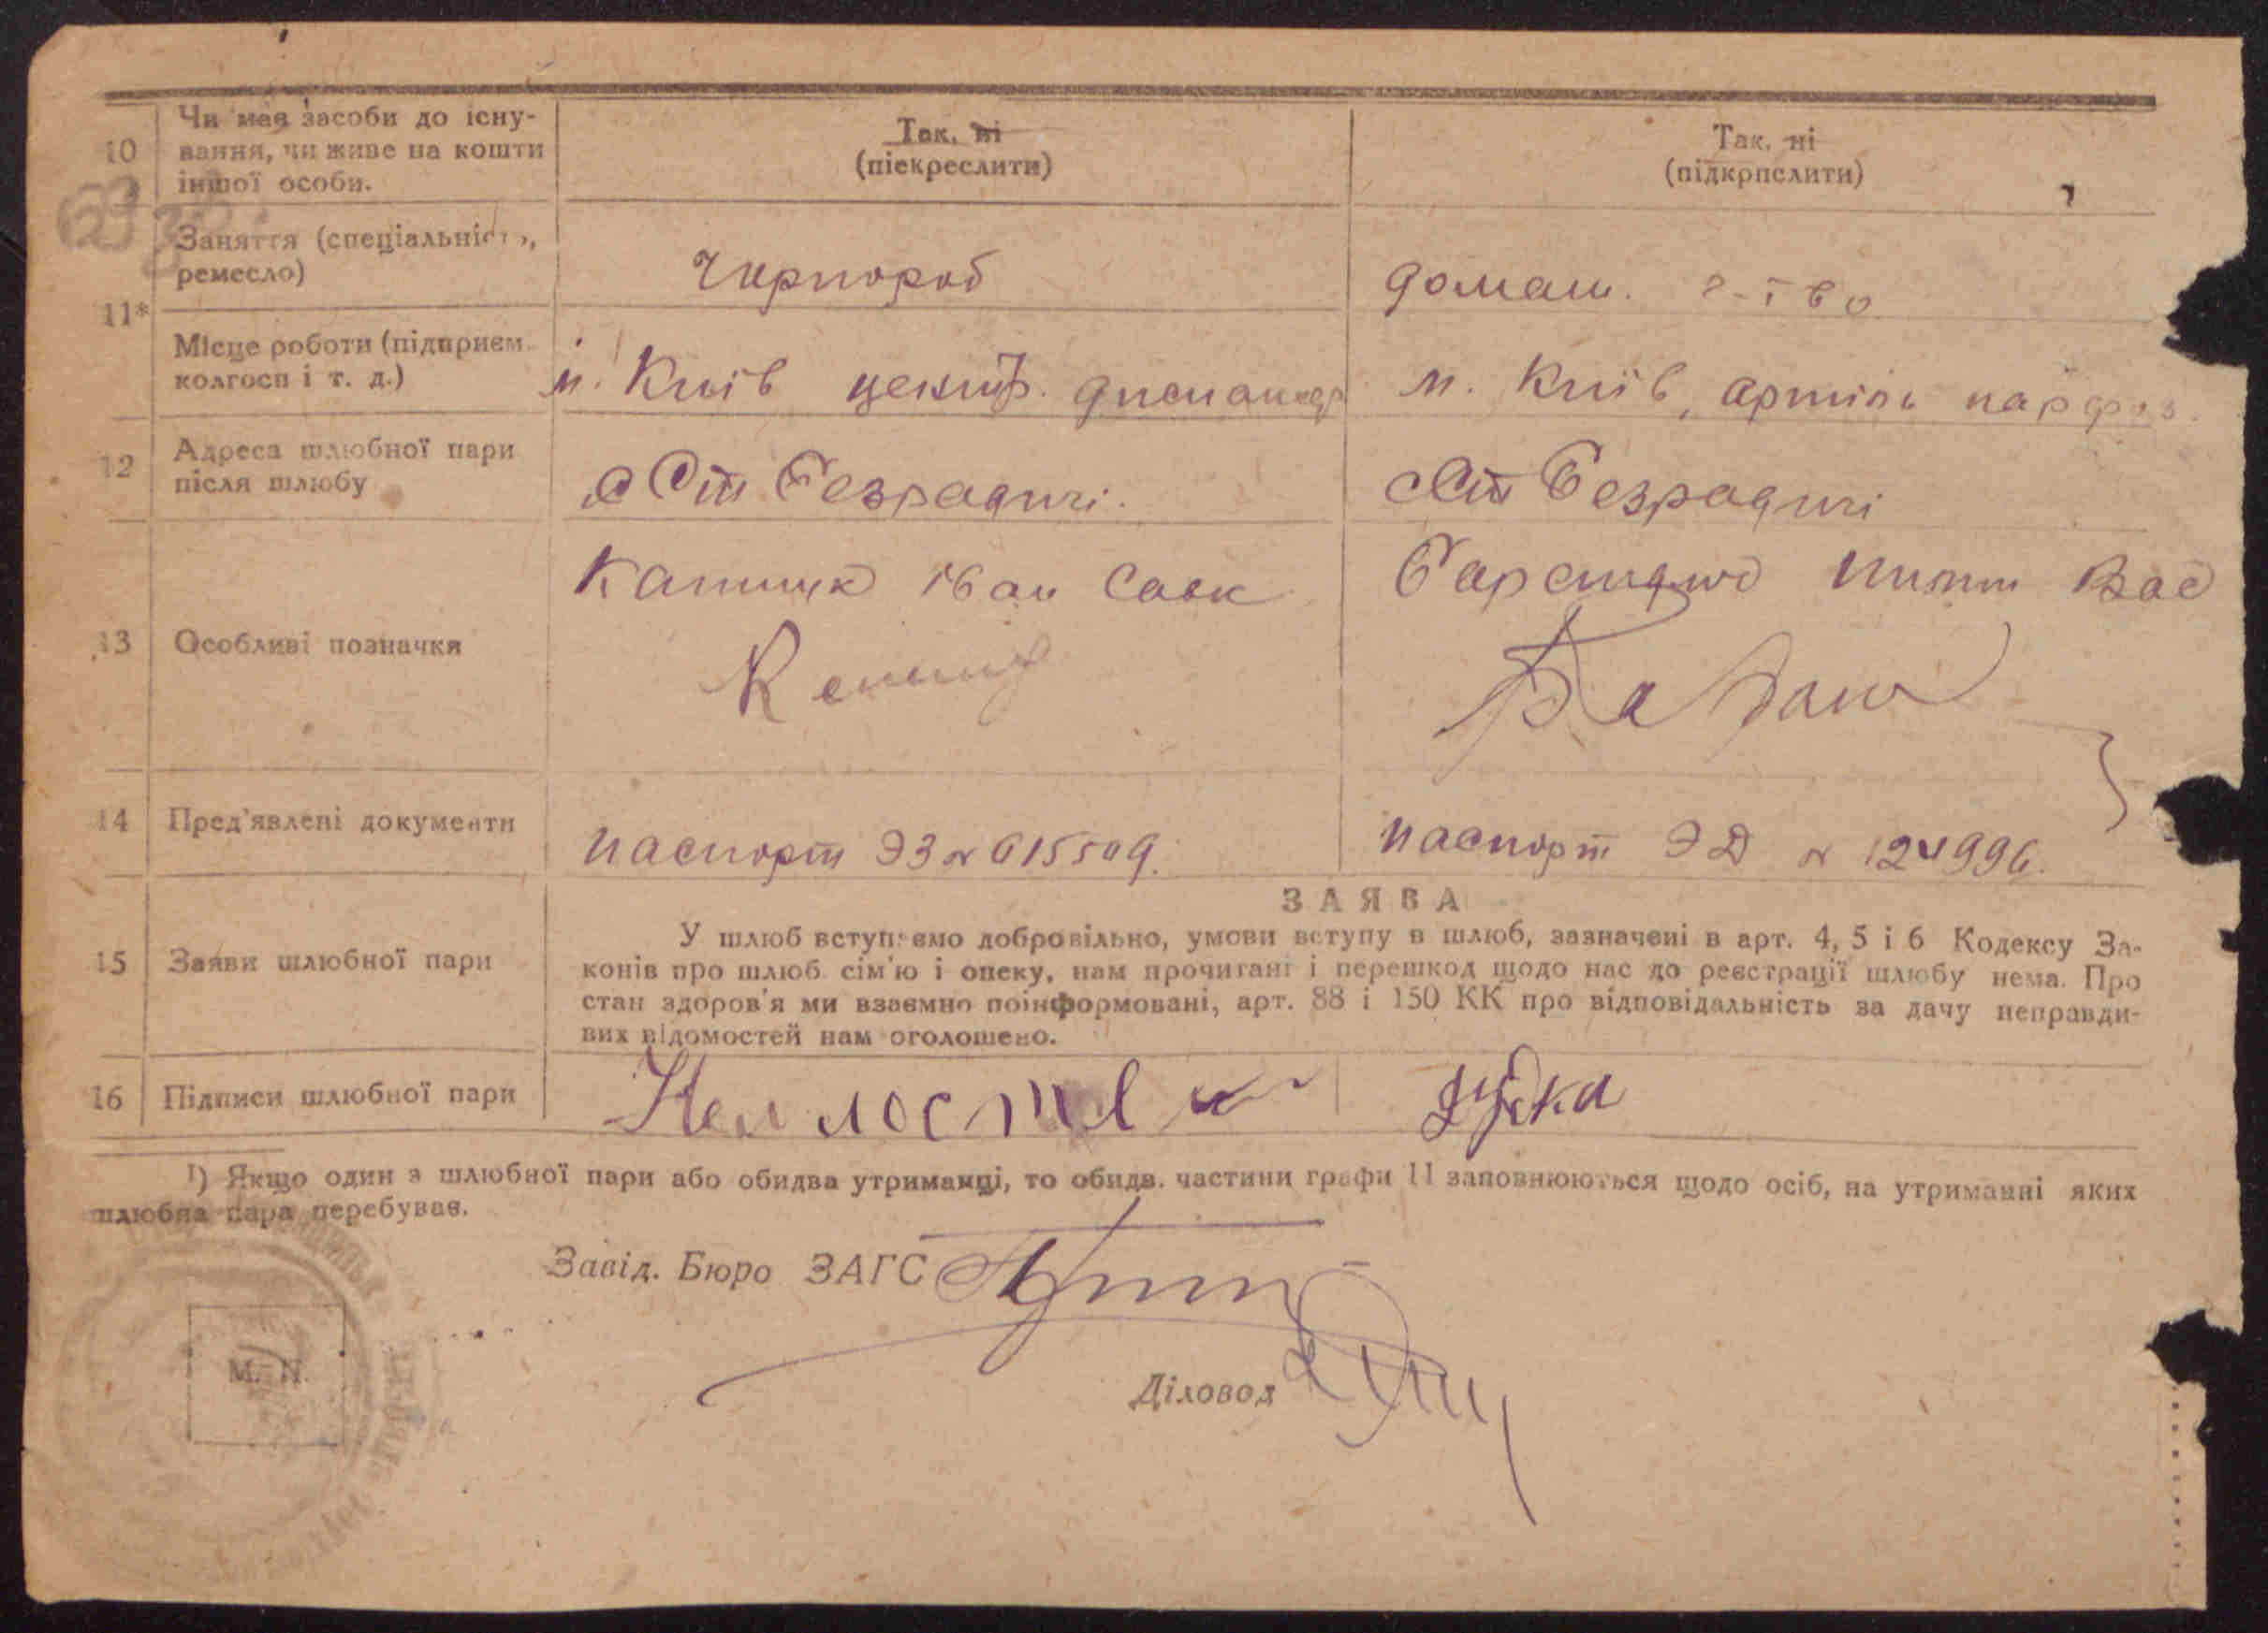 10
Чи має засоби до існу-
вання, чи живе на кошти
іншої особи.
Так, ні
(піекреслити)
Так, ні
(підкрпслити)
11*
Заняття (спеціальність,
ремесло)
Чернороб
домаш. г-тво
Місце роботи (підприєм.
колгосп і т. д.)
м. Київ центр.
м. Київ, артіль
12
Адреса шлюбної пари
після шлюбу
с Ст Безрадичі.
с Ст Безрадичі
13
Особливі позначки
Іван Савк
Вас
14
Пред'явлені документи
паспорт ЭЗ № 615509.
паспорт ЭД № 124996.
15
Заяви шлюбної пари
ЗАЯВА
У шлюб вступаємо добровільно, умови вступу в шлюб, зазначені в арт. 4, 5 і 6 Кодексу За-
конів про шлюб. сім'ю і опеку, нам прочитані і перешкод щодо нас до реєстрації шлюбу нема. Про
стан здоров'я ми взаємно поінформовані, арт. 88 і 150 КК про відповідальність за дачу неправди-
вих відомостей нам оголошено.
16
Підписи шлюбної пари
1) Якщо один з шлюбної пари або обидва утриманці, то обидв. частини графи 11 заповнюються щодо осіб, на утриманні яких
шлюбна пара перебуває.
Завід. Бюро ЗАГС
М. П.
Діловод